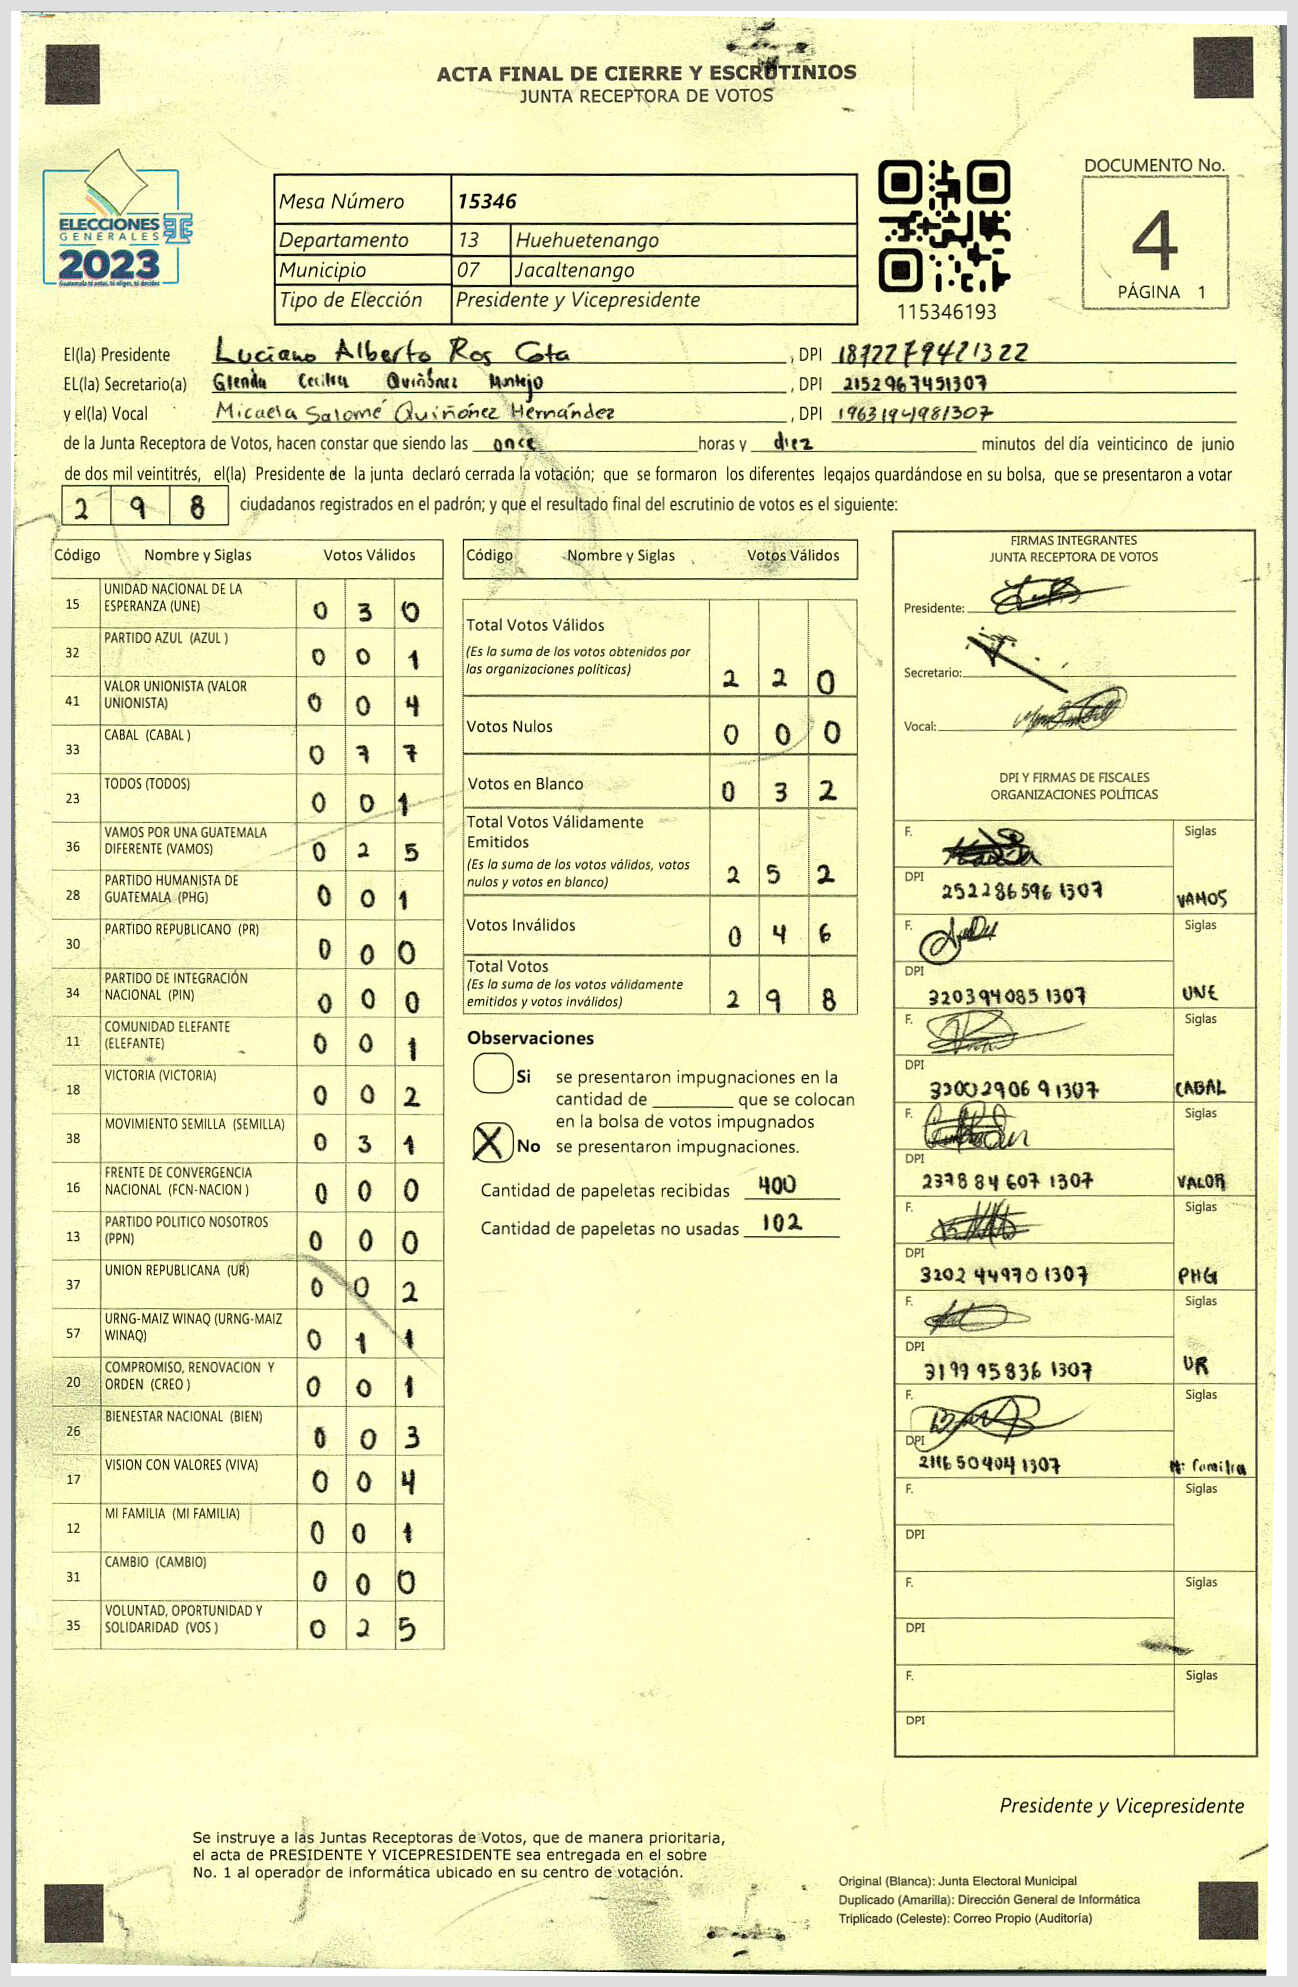 ACTA FINAL DE CIERRE Y ESCRUTINIOS
JUNTA RECEPTORA DE VOTOS
ELECCIONES
GENERALES
2023
Guatemala tú antes, tú eliges, tú decides
Mesa Número 15346
Departamento 13 Huehuetenango
Municipio 07 Jacaltenango
Tipo de Elección Presidente y Vicepresidente
115346193
DOCUMENTO No.
4
PÁGINA 1
El(la) Presidente Luciano Alberto Ros Cota , DPI 1872279421322
EL(la) Secretario(a) Glenda Cecilia Quiñónez Montejo , DPI 2152967451307
y el(la) Vocal Micaela Salomé Quiñónez Hernández , DPI 1963194981307
de la Junta Receptora de Votos, hacen constar que siendo las once horas y diez minutos del día veinticinco de junio
de dos mil veintitrés, el(la) Presidente de la junta declaró cerrada la votación; que se formaron los diferentes legajos guardándose en su bolsa, que se presentaron a votar
298 ciudadanos registrados en el padrón; y que el resultado final del escrutinio de votos es el siguiente:
Código Nombre y Siglas Votos Válidos
15 UNIDAD NACIONAL DE LA ESPERANZA (UNE) 0 3 0
32 PARTIDO AZUL (AZUL ) 0 0 1
41 VALOR UNIONISTA (VALOR UNIONISTA) 0 0 4
33 CABAL (CABAL ) 0 7 7
23 TODOS (TODOS) 0 0 1
36 VAMOS POR UNA GUATEMALA DIFERENTE (VAMOS) 0 2 5
28 PARTIDO HUMANISTA DE GUATEMALA (PHG) 0 0 1
30 PARTIDO REPUBLICANO (PR) 0 0 0
34 PARTIDO DE INTEGRACIÓN NACIONAL (PIN) 0 0 0
11 COMUNIDAD ELEFANTE (ELEFANTE) 0 0 1
18 VICTORIA (VICTORIA) 0 0 2
38 MOVIMIENTO SEMILLA (SEMILLA) 0 3 1
16 FRENTE DE CONVERGENCIA NACIONAL (FCN-NACION ) 0 0 0
13 PARTIDO POLITICO NOSOTROS (PPN) 0 0 0
37 UNION REPUBLICANA (UR) 0 0 2
57 URNG-MAIZ WINAQ (URNG-MAIZ WINAQ) 0 1 1
20 COMPROMISO, RENOVACION Y ORDEN (CREO ) 0 0 1
26 BIENESTAR NACIONAL (BIEN) 0 0 3
17 VISION CON VALORES (VIVA) 0 0 4
12 MI FAMILIA (MI FAMILIA) 0 0 1
31 CAMBIO (CAMBIO) 0 0 0
35 VOLUNTAD, OPORTUNIDAD Y SOLIDARIDAD (VOS ) 0 2 5
Código Nombre y Siglas Votos Válidos
Total Votos Válidos
(Es la suma de los votos obtenidos por
las organizaciones políticas) 2 2 0
Votos Nulos 0 0 0
Votos en Blanco 0 3 2
Total Votos Válidamente
Emitidos
(Es la suma de los votos válidos, votos
nulos y votos en blanco) 2 5 2
Votos Inválidos 0 4 6
Total Votos
(Es la suma de los votos válidamente
emitidos y votos inválidos) 2 9 8
Observaciones
Si se presentaron impugnaciones en la
cantidad de ________ que se colocan
en la bolsa de votos impugnados
X No se presentaron impugnaciones.
Cantidad de papeletas recibidas 400
Cantidad de papeletas no usadas 102
FIRMAS INTEGRANTES
JUNTA RECEPTORA DE VOTOS
Presidente:
Secretario:
Vocal:
DPI Y FIRMAS DE FISCALES
ORGANIZACIONES POLÍTICAS
F. Siglas
DPI 2522865961307 VAMOS
F. Siglas
DPI 3203940851307 UNE
F. Siglas
DPI 3300290691307 CABAL
F. Siglas
DPI 2378846071307 VALOR
F. Siglas
DPI 3202449701307 PHG
F. Siglas
DPI 3199958361307 UR
F. Siglas
DPI 2116504041307 Mi Familia
F. Siglas
DPI
F. Siglas
DPI
F. Siglas
DPI
Presidente y Vicepresidente
Se instruye a las Juntas Receptoras de Votos, que de manera prioritaria,
el acta de PRESIDENTE Y VICEPRESIDENTE sea entregada en el sobre
No. 1 al operador de informática ubicado en su centro de votación.
Original (Blanca): Junta Electoral Municipal
Duplicado (Amarilla): Dirección General de Informática
Triplicado (Celeste): Correo Propio (Auditoría)